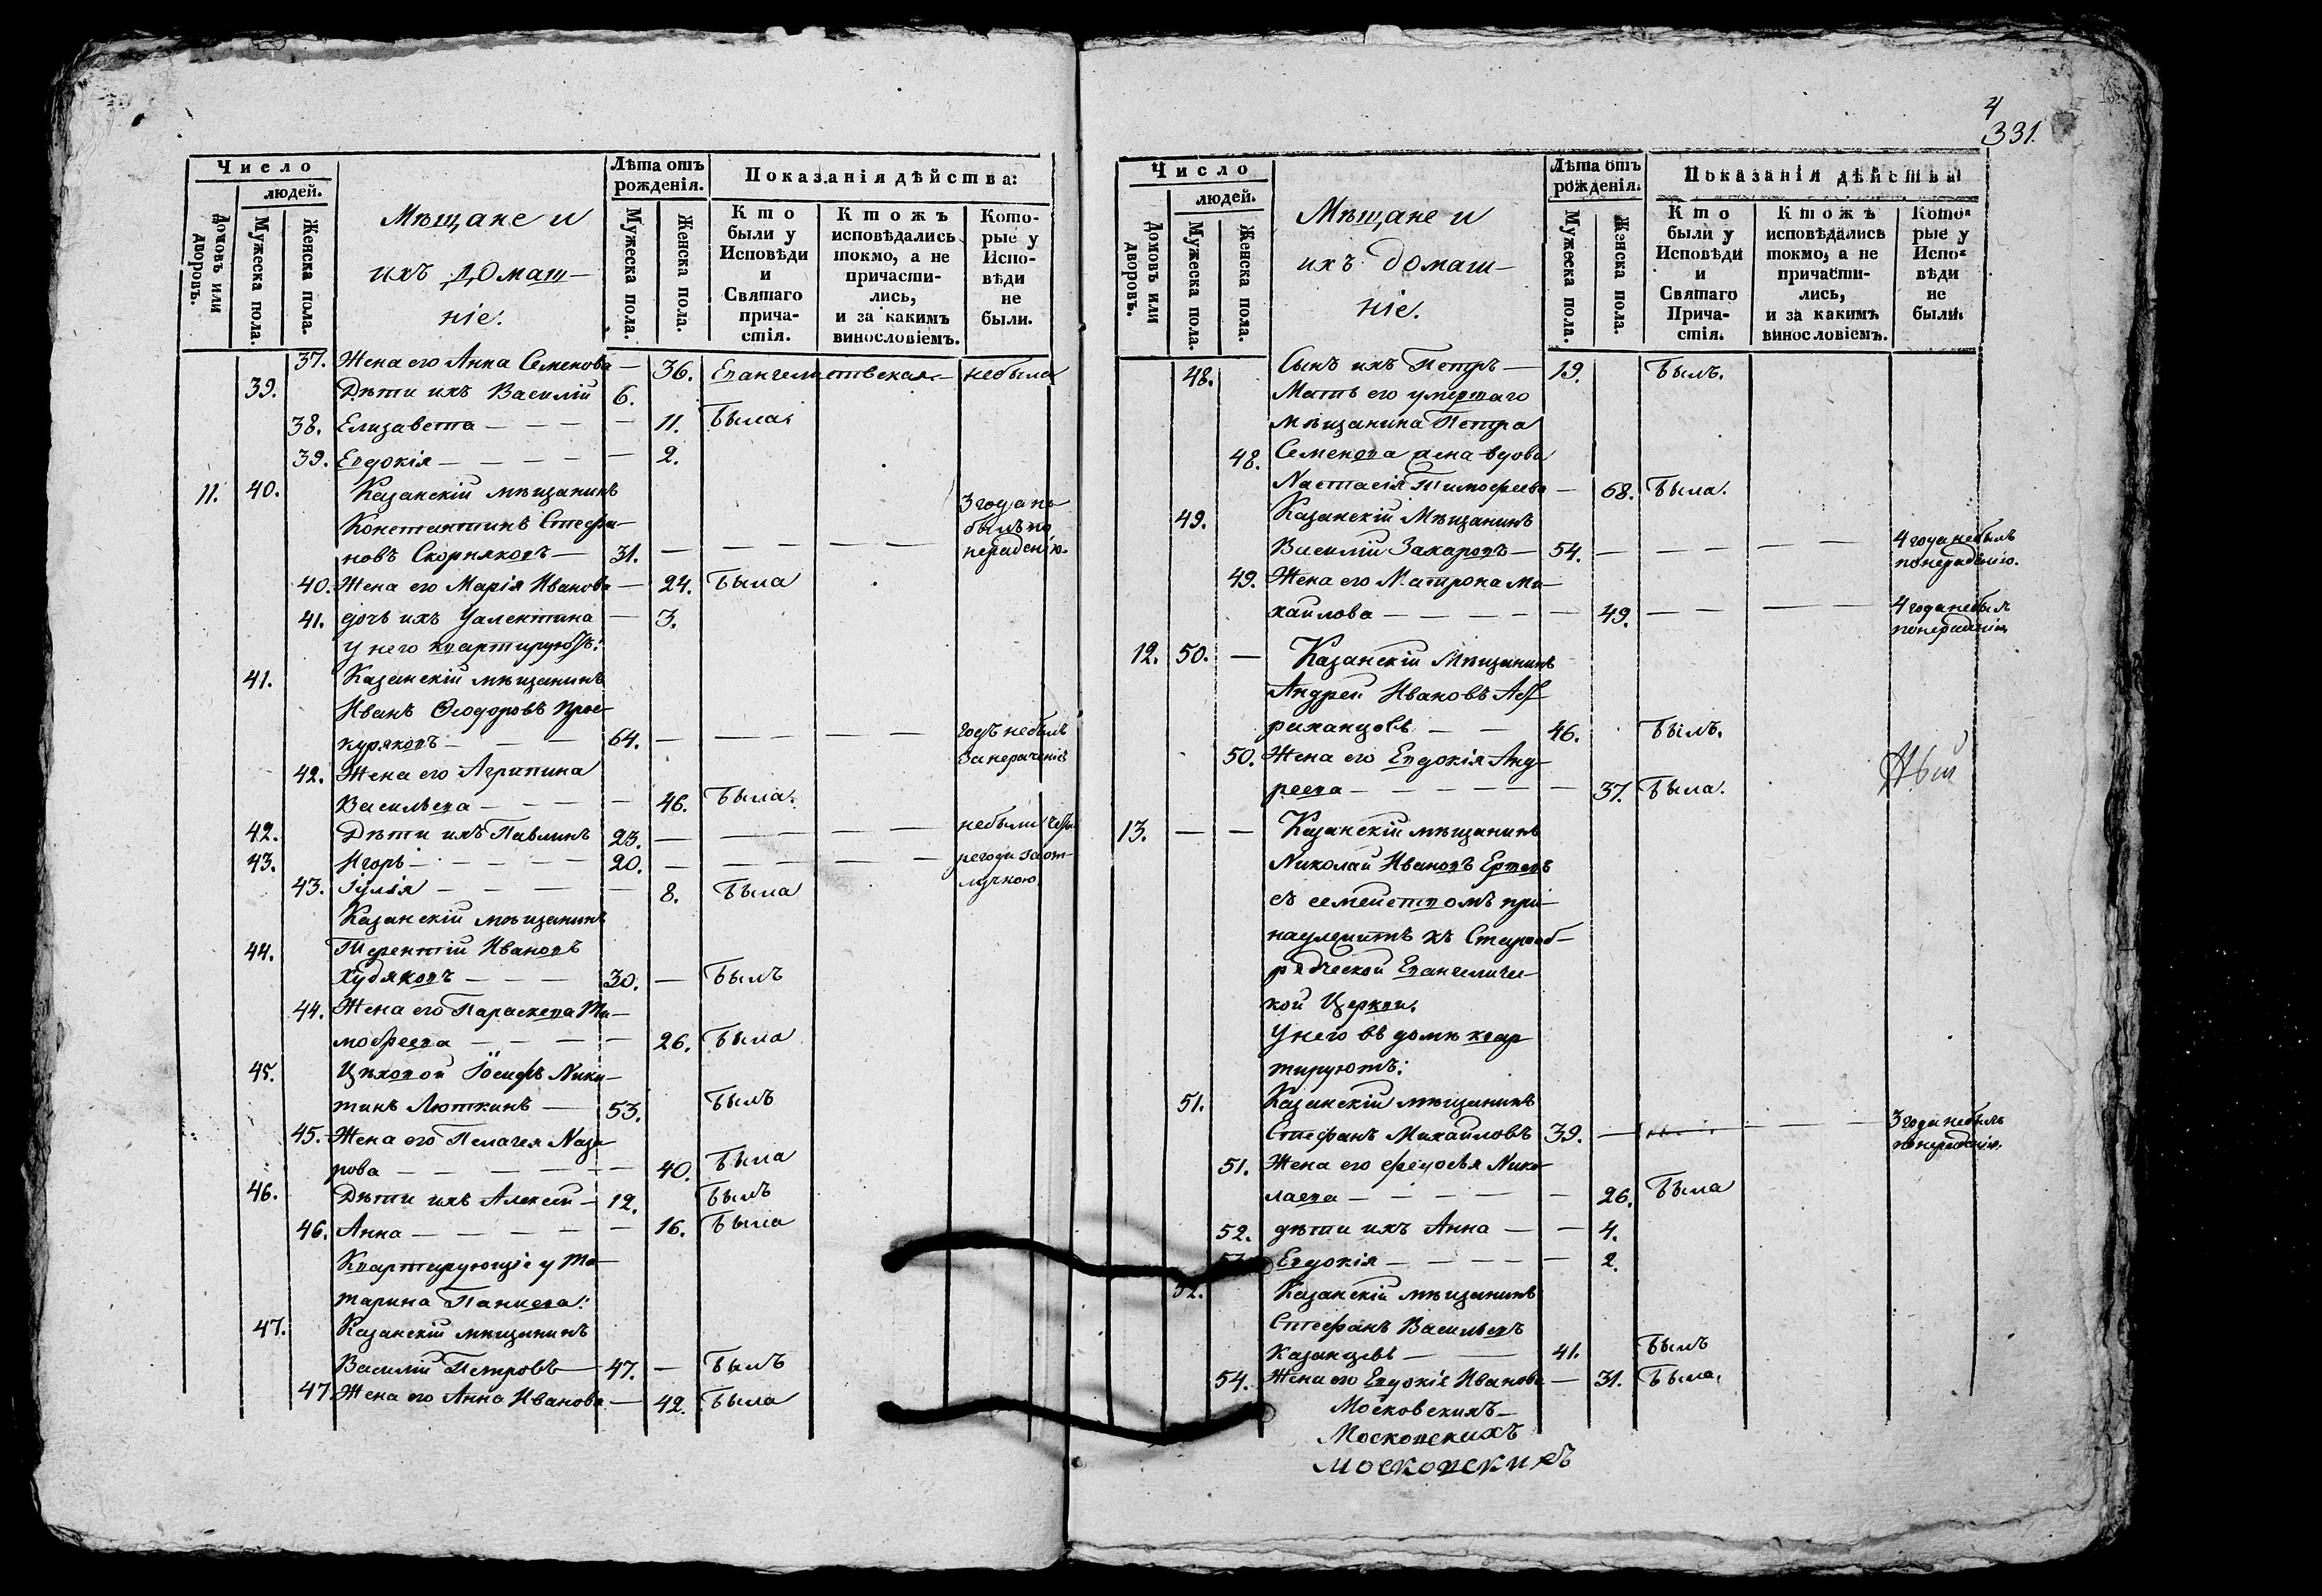 Число
людей.
Домовъ или дворовъ.
Мужеска пола.
Женска пола.
Мѣщане и
ихъ домаш-
ніе.
Лѣта отъ
рожденія.
Мужеска пола.
Женска пола.
Показанія дѣйства:
Кто
были у
Исповѣди
и
Святаго
прича-
стія.
Ктожъ
исповѣдались
токмо, а не
причасти-
лись,
и за какимъ
винословіемъ.
Кото-
рые у
Испо-
вѣди
не
были.
37. Жена его Анна Семенова — 36. Евангелиствская — небыла
39. Дѣти ихъ Василій 6.
38. Елизавета — 11. Была
39. Евдокія — 2.
11. 40. Казанскій мѣщанинъ
Константинъ Стефа- 3 года не
новъ Скорняковъ — 31. — былъ по
нерадѣнію.
40. Жена его Марія Иванова — 24. Была
41. дочь ихъ Валентина — 3.
у него квартируютъ:
41. Казанскій мѣщанинъ
Иванъ Ѳеодоровъ Прос-
куряковъ — 64. — годъ небылъ
42. Жена его Агрипина
Васильева — 46. Была.
42. Дѣти ихъ Павлинъ 23. — небыли четы
43. Игорь — 20. — ре года за от-
43. Іулія — 8. Была лучкою
Казанскій мѣщанинъ
44. Терентій Ивановъ
Худяковъ — 30. — Былъ
44. Жена его Параскева Ти-
мофеева — 26. Была
45. Цѣховой Іосифъ Ники-
тинъ Люткинъ — 53. Былъ
45. Жена его Пелагея Наза-
рова — 40. Была
46. Дѣти ихъ Алексей — 12. Былъ
46. Анна — 16. Была
Квартирующіе у
47. Казанскій мѣщанинъ
Василій Петровъ — 47. — Былъ
47. Жена его Анна Иванова — 42. Была
4
331.
Число
людей.
Домовъ или дворовъ.
Мужеска пола.
Женска пола.
Мѣщане и
ихъ домаш-
ніе.
Лѣта отъ
рожденія.
Мужеска пола.
Женска пола.
Показанія дѣйства
Кто
были у
Исповѣди
и
Святаго
Прича-
стія.
Ктожъ
исповѣдались
токмо, а не
причасти-
лись,
и за какимъ
винословіемъ.
Кото-
рые у
Испо-
вѣди
не
были.
48. Сынъ ихъ Петръ — 19. Былъ.
Мать его умершаго
мѣщанина Петра
48. Семенова вдова
Настасія Тимофеева — 68. Была.
49. Казанскій Мѣщанинъ
Василій Захаровъ — 54. — 4 года небылъ
понерадѣнію.
49. Жена его Матрона Ми-
хайлова — 49. — 4 года небыл
понерадѣнію
12. 50. — Казанскій Мѣщанинъ
Андрей Ивановъ Аст-
раханцовъ — 46. Былъ.
50. Жена его Евдокія Анд-
реева — 37. Была.
13. — — Казанскій мѣщанинъ
Николай Ивановъ
съ семействомъ при-
надлежитъ къ Старооб-
рядческой Евангеличес-
кой Церкви.
У него въ домѣ квар-
тируютъ:
51. Казанскій мѣщанинъ
Стефанъ Михайловъ 39. — 3 года небылъ
понерадѣнію.
51. Жена его Федосья Нико-
лаева — 26. Была
52. дѣти ихъ Анна — 4.
Евдокія — 2.
52. Казанскій мѣщанинъ
Стефанъ Васильевъ
Казанцевъ — 41. Былъ
54. Жена его Евдокія Иванова — 31. Была.
Московскихъ
Московскихъ
Московскихъ